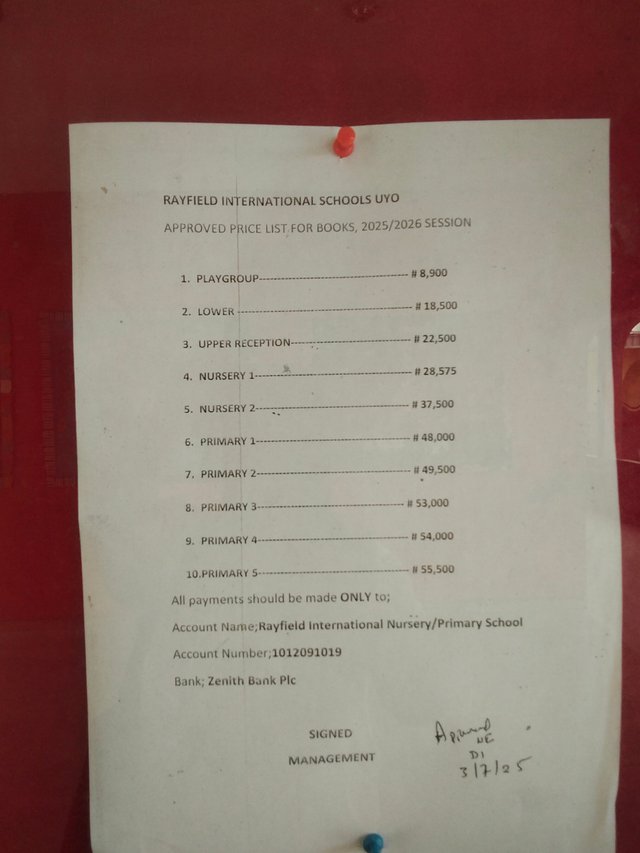 RAYFIELD INTERNATIONAL SCHOOLS UYO
APPROVED PRICE LIST FOR BOOKS, 2025/2026 SESSION
1. PLAYGROUP---------------------------------------- # 8,900
2. LOWER ---------------------------------------------- # 18,500
3. UPPER RECEPTION-------------------------------- # 22,500
4. NURSERY 1------------------------------------------ # 28,575
5. NURSERY 2------------------------------------------ # 37,500
6. PRIMARY 1------------------------------------------ # 48,000
7. PRIMARY 2------------------------------------------ # 49,500
8. PRIMARY 3----------------------------------------- # 53,000
9. PRIMARY 4------------------------------------------ # 54,000
10.PRIMARY 5------------------------------------------ # 55,500
All payments should be made ONLY to;
Account Name;Rayfield International Nursery/Primary School
Account Number;1012091019
Bank; Zenith Bank Plc
SIGNED
MANAGEMENT
Approved
3/7/25